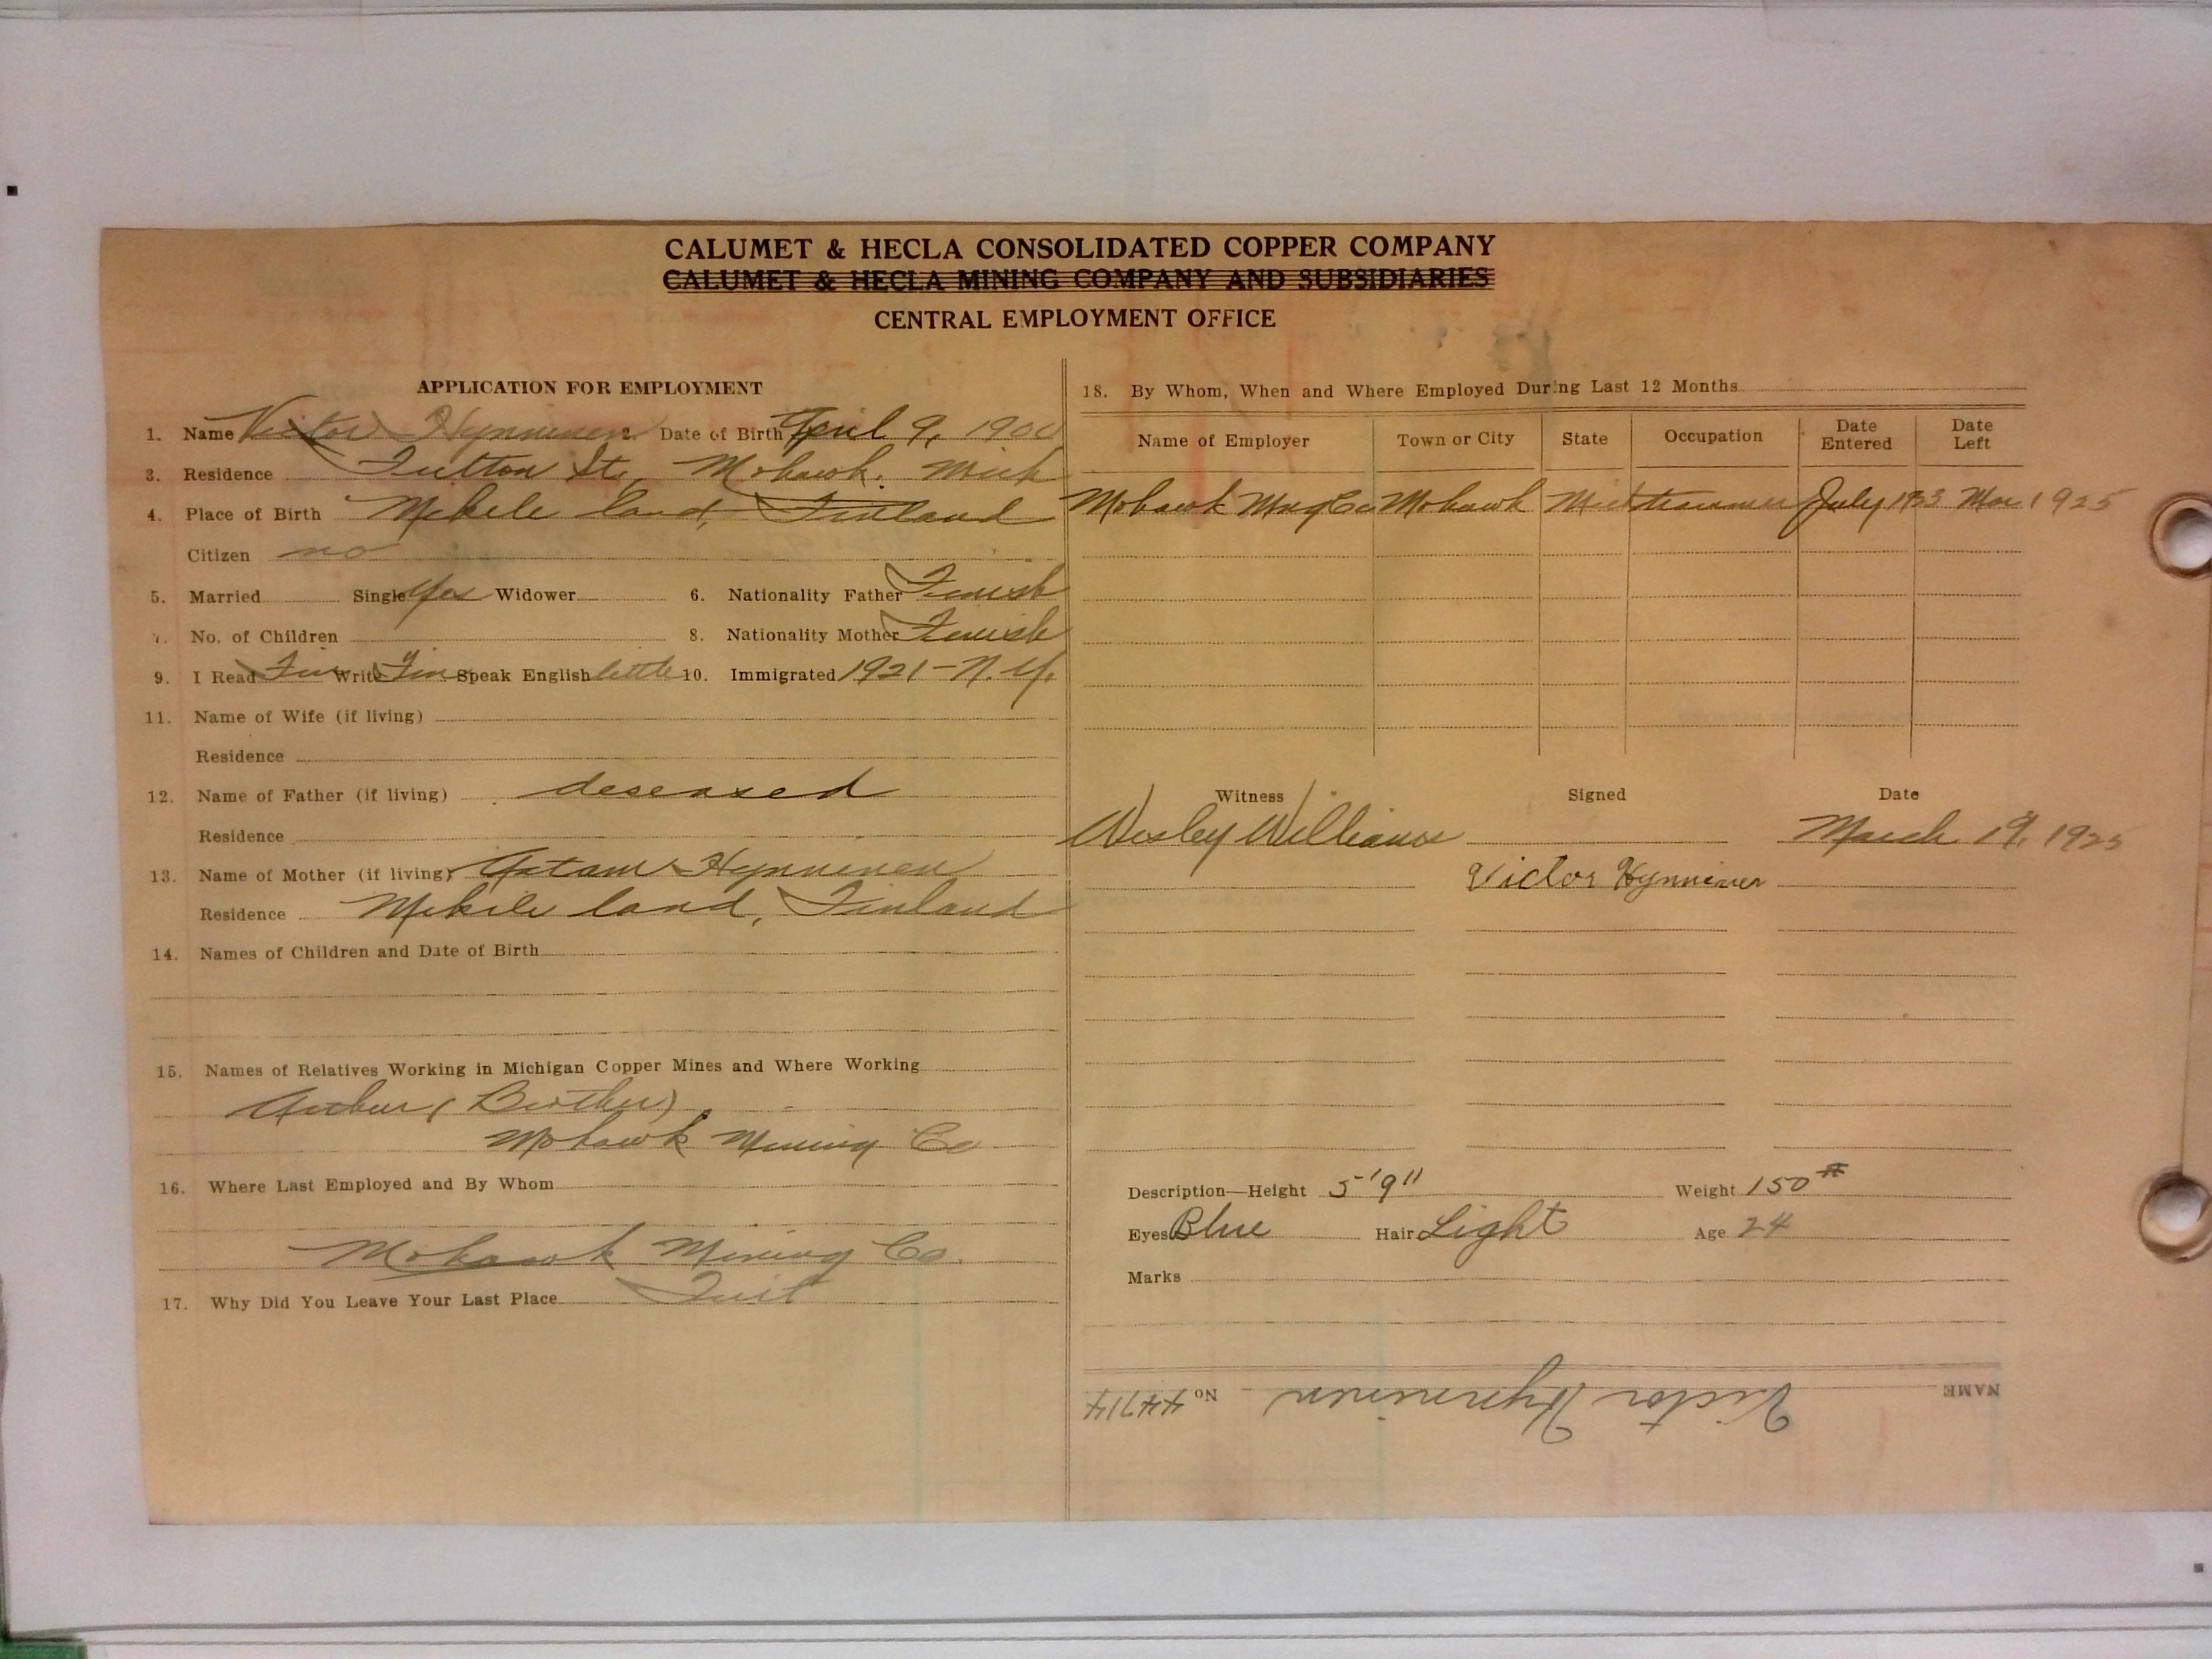 CALUMET & HECLA CONSOLIDATED COPPER COMPANY
CALUMET & HECLA MINING COMPANY AND SUBSIDIARIES
CENTRAL EMPLOYMENT OFFICE
APPLICATION FOR EMPLOYMENT
1. Name Victor Hynninen 2. Date of Birth April 9, 1900
3. Residence Fulton St, Mohawk, Mich
4. Place of Birth Mekile land, Finland
Citizen no
5. Married Single Yes Widower 6. Nationality Father Finish
7. No. of Children 8. Nationality Mother Finish
9. I Read Fin Write Fin Speak English little 10. Immigrated 1921 - N.Y.
11. Name of Wife (if living)
Residence
12. Name of Father (if living) deseased
Residence
13. Name of Mother (if living) Hynninen
Residence Mekile land, Finland
14. Names of Children and Date of Birth
15. Names of Relatives Working in Michigan Copper Mines and Where Working
Arthur (Brother)
Mohawk Mining Co
16. Where Last Employed and By Whom
Mohawk Mining Co.
17. Why Did You Leave Your Last Place Quit
18. By Whom, When and Where Employed During Last 12 Months
Name of Employer Town or City State Occupation Date Entered Date Left
Mohawk Mng Co Mohawk Mich trammer July 1923 Mar 1925
Witness Signed Date
Wesley Williams March 19, 1925
Victor Hynninen
Description—Height 5'9" Weight 150#
Eyes Blue Hair Light Age 24
Marks
NAME Victor Hynninen No 44714